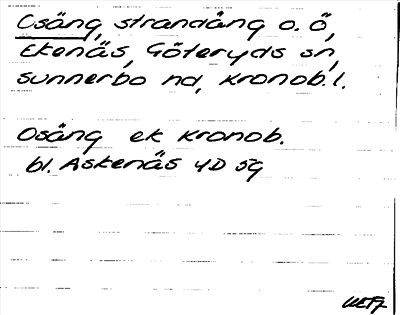 Osäng, strandäng o. Ö,
Ekenäs, Göteryds sn,
Sunnerbo hd, Kronob. l.
Osäng ek Kronob.
bl. Askenäs 4D 5g